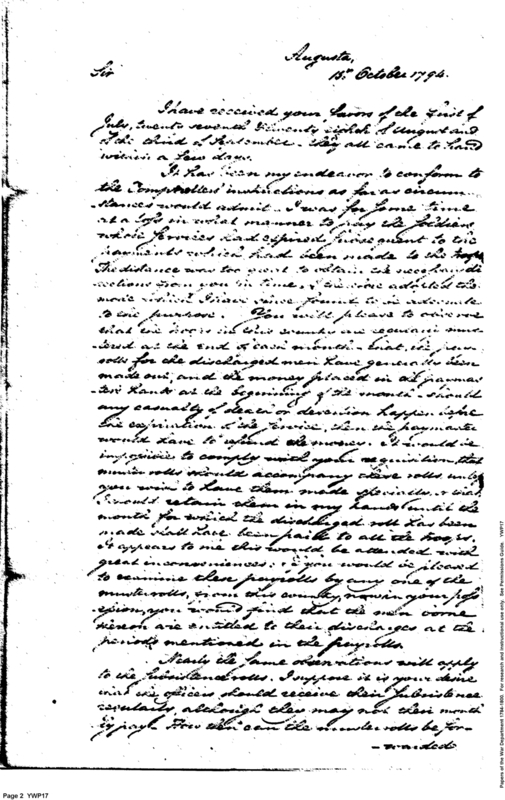 Augusta,
15th October 1794.
Sir
I have received your favors of the first of
July, twenty seventh & twenty eighth of August and
of the third of September. they all came to hand
within a few days.
It has been my endeavor to conform to
the Comptrollers instructions as far as circum
-stances would admit. I was for some time
at a loss in what manner to pay the soldiers
whose services had expired subsequent to the
payments which had been made to the troops
The distance was too great to obtain the necessary di
-rections from you in time, I therefore adopted the
mode which I have since found to be adequate
to the purpose. You will please to observe
that the troops in this country are regularly mus
-tered at the end of each month - that, the pay
rolls for the discharged men have generally been
made out, and the money placed in the paymas
-ters hands at the beginning of the month - should
any casualty of death or desertion happen before
the expiration of the service, then the paymaster
would have to refund the monies. It would be
impossible to comply with your requisition, that
muster rolls should accompany these rolls, unless
you wish to have them made specially, or that
I should retain them in my hands until the
month for which the discharged roll has been
made shall have been paid to all the troops.
It appears to me this would be attended with
great inconveniences: if you would be pleased
to examine these payrolls by any one of the
musterrolls, from this country, now in your poss
-ession, you would find that the men borne
thereon are entitled to their discharges at the
periods mentioned in the payrolls.
Nearly the same observations will apply
to the Subsistence rolls. I suppose it is your desire
that the officers should receive their Subsistence
regularly, although they may not their month
-ly pay. How then can the muster rolls be for-
-warded
Page 2 YWP17
Papers of the War Department 1784-1800. For research and instructional use only. See Permissions Guide. YWP17